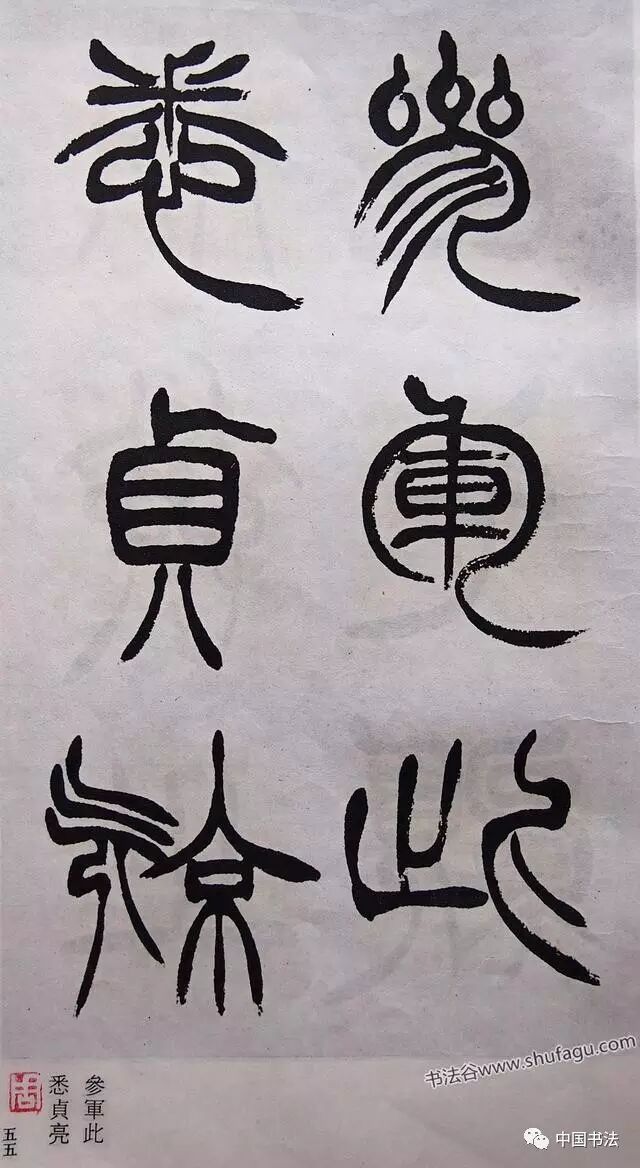 參軍此
悉貞亮
參軍此
悉貞亮
五五
书法谷www.shufagu.com
中国书法